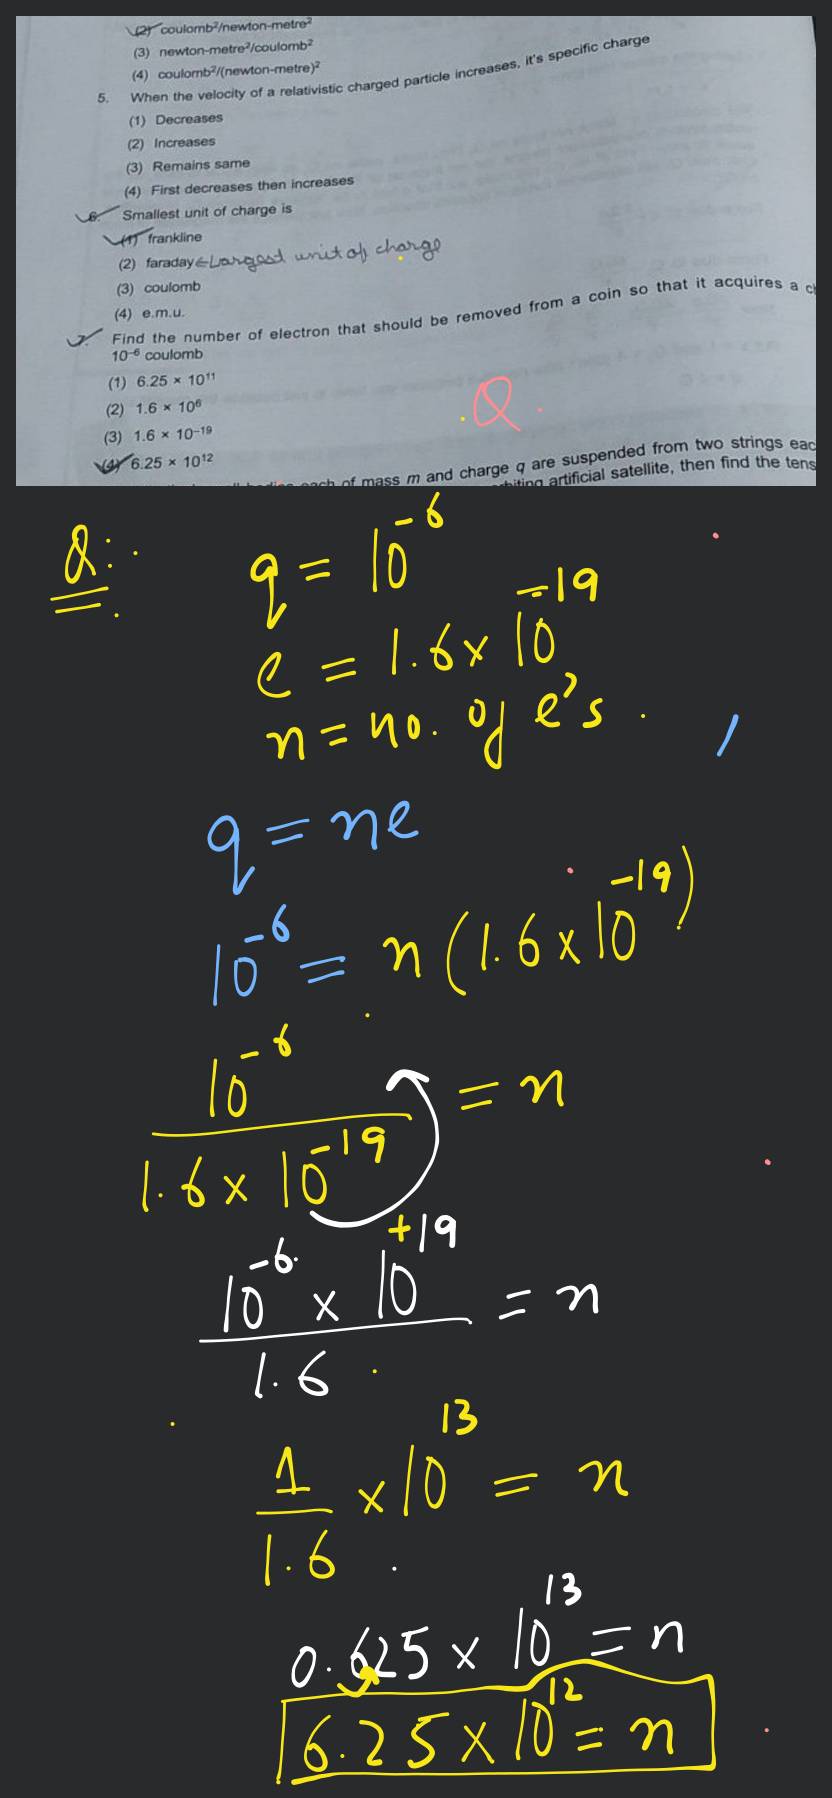 (2) coulomb²/newton-metre²
(3) newton-metre²/coulomb²
(4) coulomb²/(newton-metre)²
5. When the velocity of a relativistic charged particle increases, it's specific charge
(1) Decreases
(2) Increases
(3) Remains same
(4) First decreases then increases
6. Smallest unit of charge is
(1) frankline
(2) faraday ← Largest unit of charge
(3) coulomb
(4) e.m.u.
7. Find the number of electron that should be removed from a coin so that it acquires a
10⁻⁶ coulomb
(1) 6.25 × 10¹¹
(2) 1.6 × 10⁶
(3) 1.6 × 10⁻¹⁹
Q.
(4) 6.25 × 10¹²
each of mass m and charge q are suspended from two strings
artificial satellite, then find the
Q:
q = 10⁻⁶
e = 1.6 × 10⁻¹⁹
n = no. of e's.
q = ne
10⁻⁶ = n (1.6 × 10⁻¹⁹)
10⁻⁶ / 1.6 × 10⁻¹⁹ = n
10⁻⁶ × 10⁺¹⁹ / 1.6 = n
1/1.6 × 10¹³ = n
0.625 × 10¹³ = n
6.25 × 10¹² = n